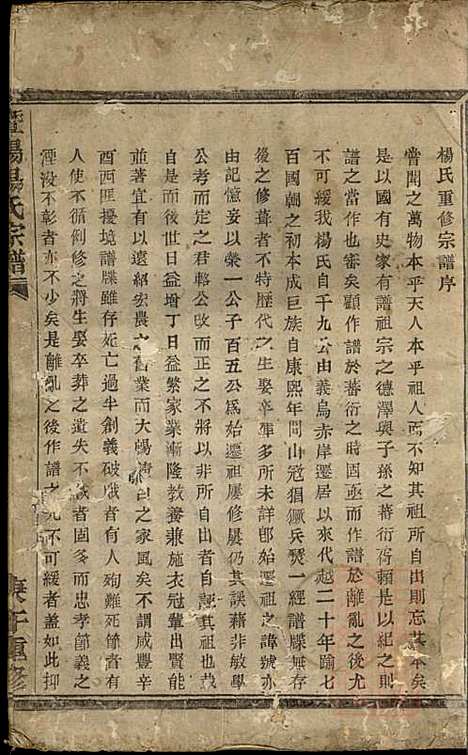 楊氏重修宗譜序
嘗聞之萬物本乎天人本乎祖人而不知其祖所自出則忘其本矣
是以國有史家有譜祖宗之德澤與子孫之蕃衍胥賴是以紀之則
譜之當作也審矣顧作譜於蕃衍之時固亟而作譜於離亂之後尤
不可緩我楊氏自千九公由義烏赤岸遷居以來代越二十年踰七
百國朝之初本成巨族自康熙年間山冦猖獗兵燹一經譜牒無存
後之重修者不特歷代之生娶卒葬多未詳卽始遷祖之諱號亦
由記憶妄以榮一公子百五公爲始遷祖屢修屢仍其誤藉非敏學
公考而定之君輅公改而正之不將以非所自出者自誣其祖也
自是以來時世日益增丁日益繁家業漸隆教養兼施衣冠輩出賢能
並著宜有以遠紹宏農之舊業而大暢清白之家風矣不謂咸豐辛
酉西匪擾境譜牒雖存妃亡過半創義破賊者有人殉難死節者有
人使不循例修之將生娶卒葬之遺失不載者固多而忠孝節義之
湮沒不彰者亦不少矣是離亂之後作譜之尤不可緩者蓋如此抑
暨陽楊氏宗譜
庚午重修